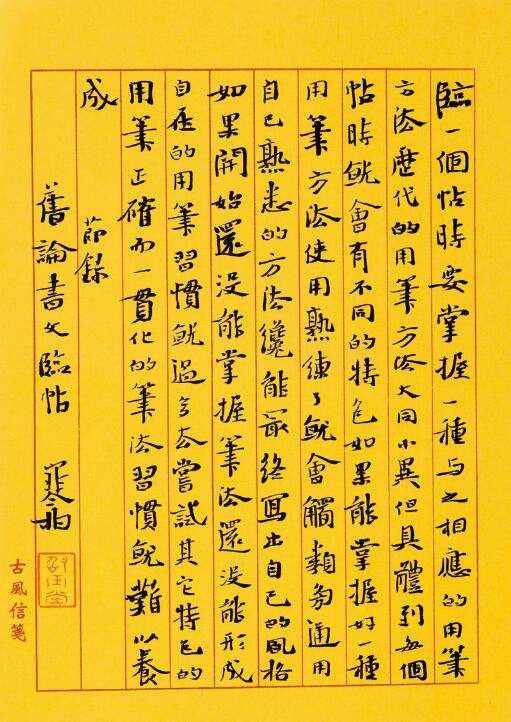 臨一個帖時要掌握一種与之相應的用筆
方法歷代的用筆方法大同小異但具體到每個
帖時就會有不同的特色如果能掌握好一種
用筆方法使用熟練了就會觸類旁通用
自己熟悉的方法纔能最終寫出自己的風格
如果開始還没能掌握筆法還没能形成
自己的用筆習慣就過多去嘗試其它特色的
用筆正確而一貫化的筆法習慣就難以養
成
節録
舊論書文臨帖
古風信箋